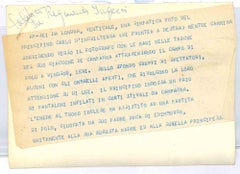 AP-RE1 DA LONDRA, VERTICALE, UNA SIMPATICA FOTO DEL
PRINCIPINO CARLO D'INGHILTERRA CHE FRONTEA A DESTRA, MENTRE CAMMINA
SORRIDENDO VERSO IL FOTOGRAFO CON LE MANI NELLE TASCHE
DEL SUO GIACCONE DI CAMPAGNA ATTRAVERSANDO IL CAMPO DI
POLO A WINDSOR, IERI. NELLO SFONDO GRUPPI DI SPETTATORI,
ALCUNI CON GLI OMBRELLI APERTI, CHE RIVOLGONO LA LORO
ATTENZIONE SU DI LUI. IL PRINCIPINO INDOSSA UN PAIO
DI PANTALONI INFILATI IN CORTI STIVALI DA CAMPAGNA.
L'EREDE AL TRONO INGLESE HA ASSISTITO AD UNA PARTITA
DI POLO, GIOCATA DA SUO PADRE DUCA DI EDIMBURGO,
UNITAMENTE ALLA SUA AUGUSTA MADRE ED ALLA SORELLA PRINCIPESSA